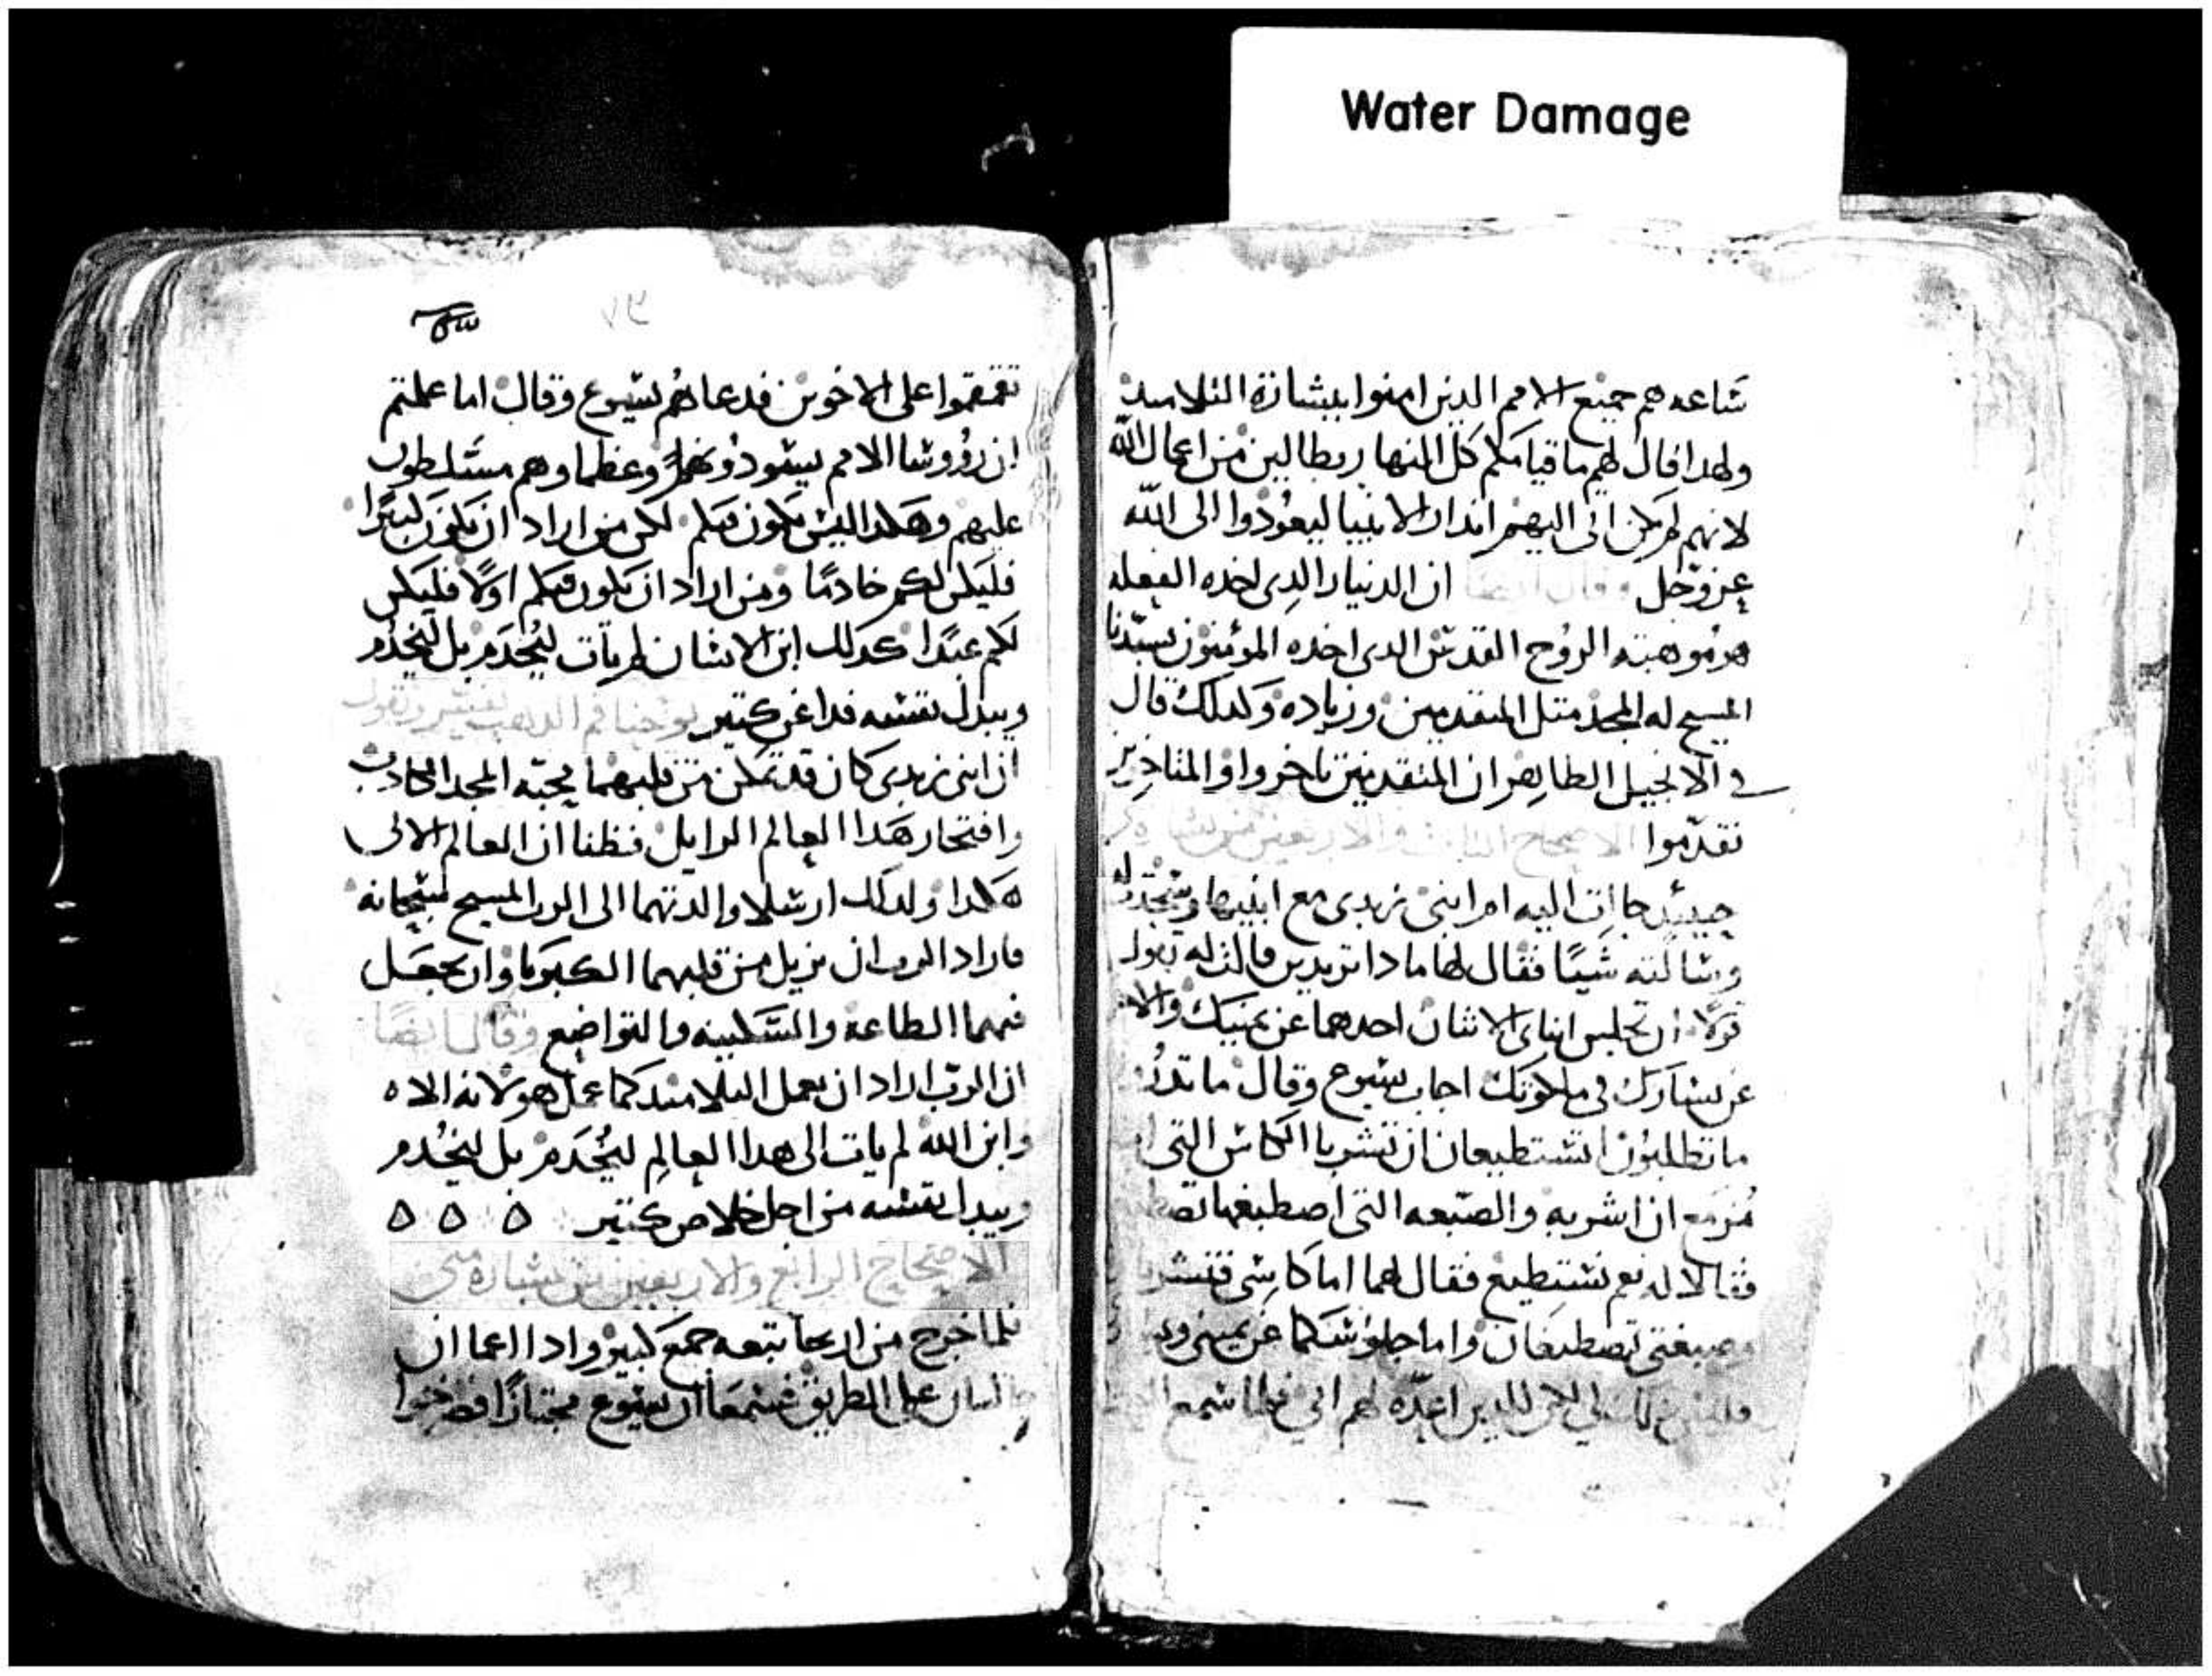 Water Damage
ساعه هم جميع الامم الدين امنوا ببشارة التلاميد
ولهدا قال لهم ما قيامكم كل النهار بطالين من اعمال الله
لانهم لم يكن اتى اليهم اندار الانبيا ليعودوا الى الله
عز وجل وقال ايضا ان الدينار الدى اخده الفعله
هو موهبة الروح القدس الدى اخده المؤمنون بسيدنا
المسيح له المجد متل المتقدمين وزياده ولدلك قال
في الانجيل الطاهر ان المتقدمين تاخروا والمتاخرين
تقدموا الاصحاح التالت والاربعين من بشارة
حينيد جاات اليه ام ابنى زبدى مع ابنيها وسجدت له
وسالته شيًا فقال لها مادا تريدين قالت له تقول
قولا ان تجلس ابناى الاثنان احدهما عن يمينك والاخر
عن يسارك في ملكوتك اجاب يسوع وقال ما تدرون
ما تطلبون اتستطيعان ان تشربا الكاس التى
مزمع ان اشربه والصبغه التى اصطبغها
فقالا له نعم نستطيع فقال لهما اما كاسى فتشربا
وصبغتى تصطبغان واما جلوسكما عن يمينى
فليس لي الا للدين اعده لهم ابي فلما سمع
٧٣
تقمقموا على الاخوين فدعاهم يسوع وقال اما علمتم
ان رووسا الامم يسودونهم وعظماوهم مسلطون
عليهم وهكدا ليس يكون فيكم لكن من اراد ان يكون كبيرًا
فليكن لكم خادمًا ومن اراد ان يكون فيكم اولًا فليكن
لكم عبدًا كدلك ابن الانسان لم يات ليُخدَم بل ليَخدُم
ويبدل نفسه فدا عن كتير يوحنا فم الدهب يفسر ويقول
ان ابنى زبدى كان قد تمكن من قلبهما محبة المجد الكادب
وافتخار هدا العالم الزايل فظنا ان العالم الاتى
هكدا ولدلك ارسلا والدتهما الى الرب المسيح سبحانه
فاراد الرب ان يزيل من قلبهما الكبريا وان يجعل
فيهما الطاعة والسكينه والتواضع وقال ايضًا
ان الرب اراد ان يعمل التلاميد كما عمل هو لانه الاه
وابن الله لم يات الى هدا العالم ليُخدَم بل ليَخدُم
ويبدل نفسه من اجل خلاص كتير
الاصحاح الرابع والاربعين من بشارة متى
فلما خرج من اريحا تبعه جمع كبير وادا اعماان
جالسان على الطريق فسمعا ان يسوع مجتازًا فصرخوا